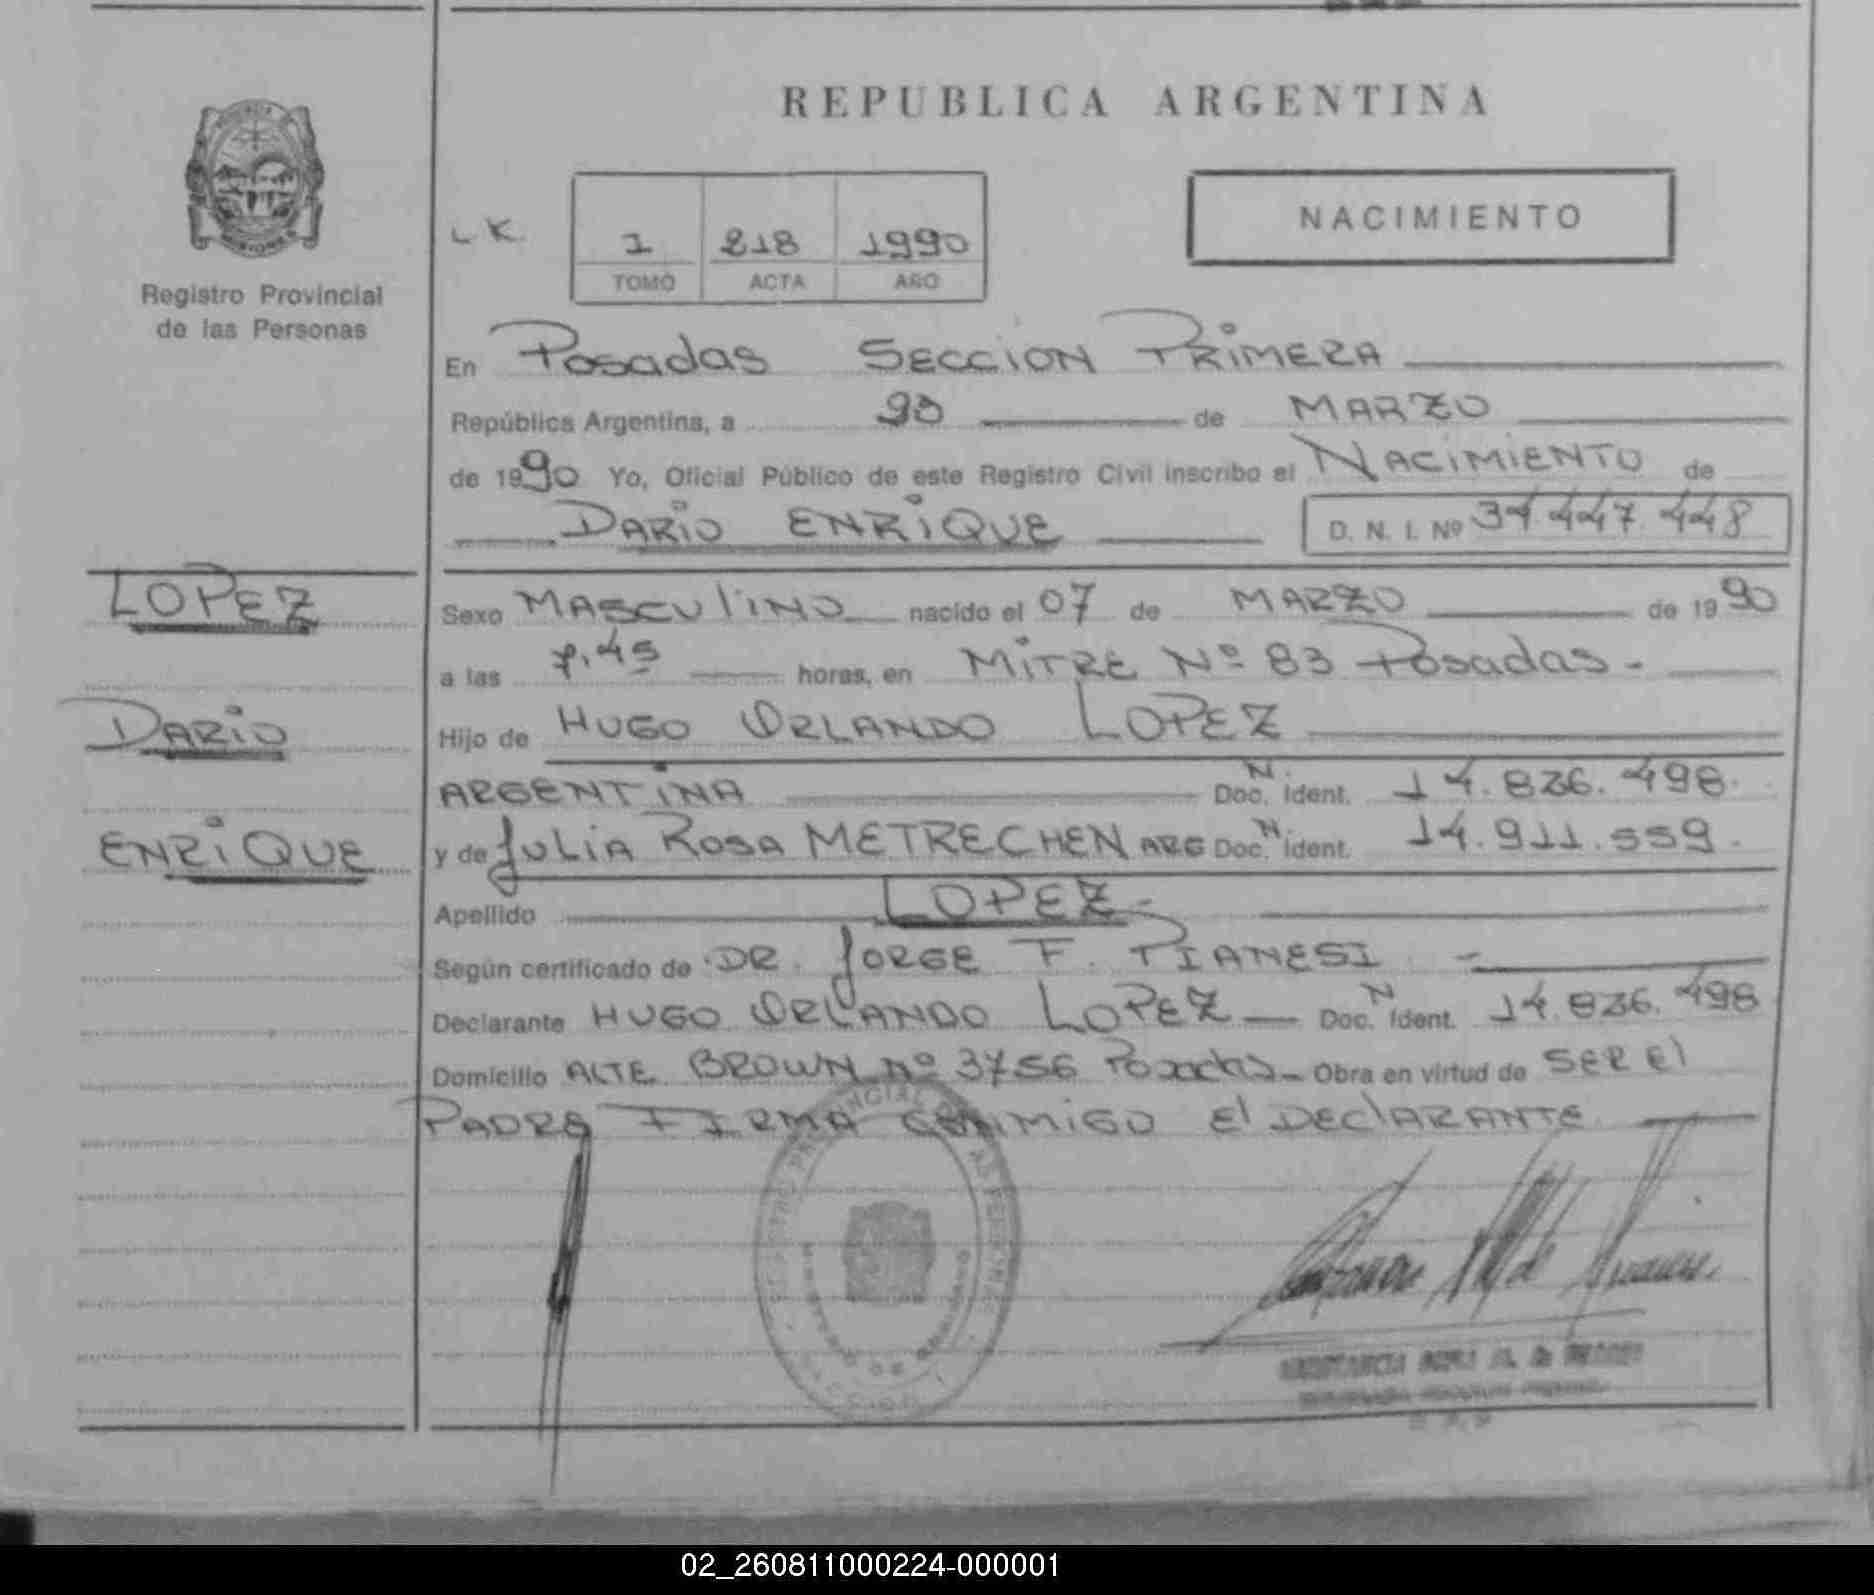 REPUBLICA ARGENTINA
Registro Provincial
de las Personas
L K.
1 218 1990
TOMO ACTA AÑO
NACIMIENTO
En Posadas SECCION PRIMERA
República Argentina, a de MARZO
de 1990 Yo, Oficial Público de este Registro Civil inscribo el NACIMIENTO de
DARIO ENRIQUE D. N. I. Nº 34.447.448
LOPEZ
DARIO
ENRIQUE
Sexo MASCULINO nacido el 07 de MARZO de 1990
a las 7.45 horas, en MITRE Nº 83 Posadas -
Hijo de HUGO ORLANDO LOPEZ
ARGENTINA Doc. N. Ident. 14.836.498.
y de JULIA ROSA METRECHEN ARG Doc. N Ident. 14.911.559.
Apellido LOPEZ-
Según certificado de DR. JORGE F. PIANESI -
Declarante HUGO ORLANDO LOPEZ Doc. N Ident. 14.836.498
Domicilio ALTE BROWN Nº 3756 Posadas - Obra en virtud de SER El
PADRE FIRMA CONMIGO El DEClARANTE
02_260811000224-000001